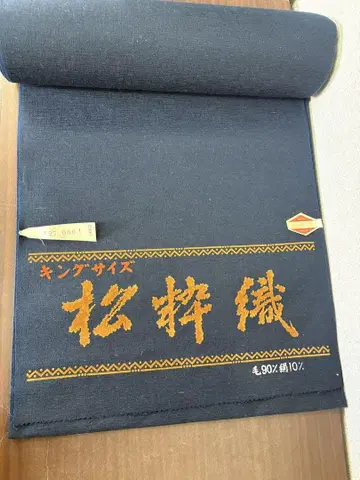 キングサイズ
松粋織
毛90%絹10%